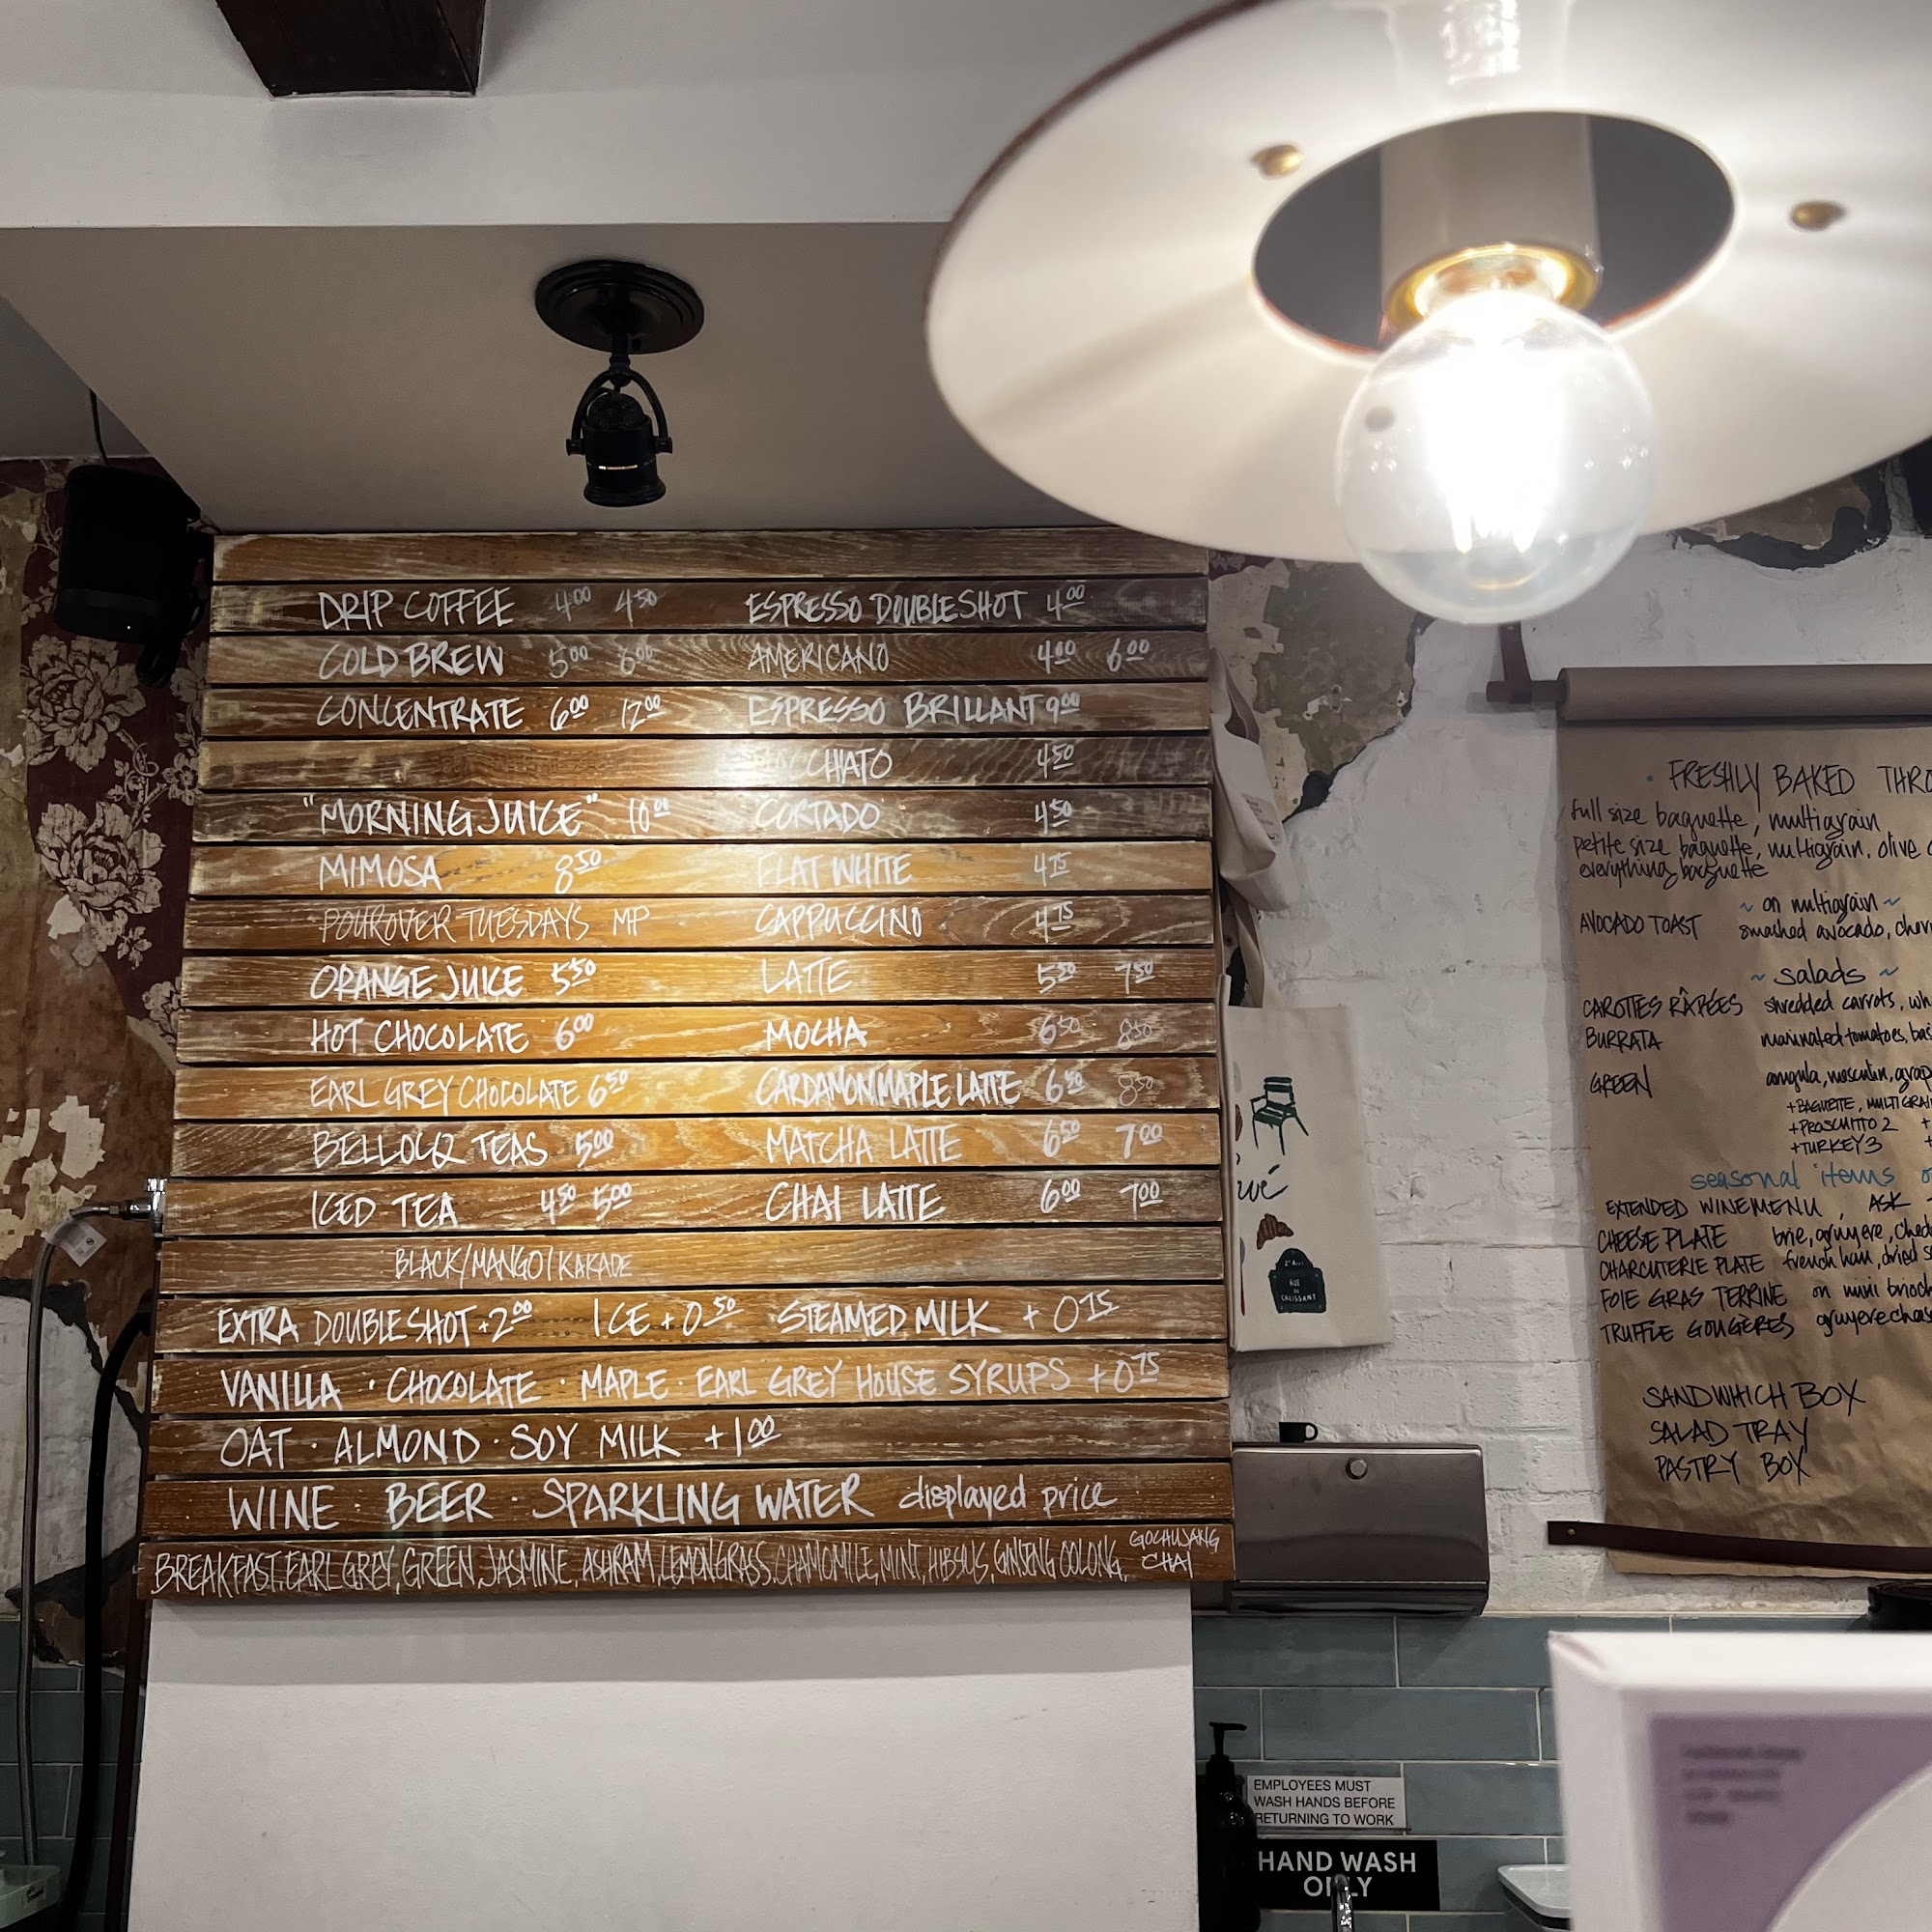 DRIP COFFEE 4.00 4.50 ESPRESSO DOUBLE SHOT 4.00
COLD BREW 5.00 6.00 AMERICANO 4.00 6.00
CONCENTRATE 6.00 12.00 ESPRESSO BRILLANT 9.00
MACCHIATO 4.50
"MORNING JUICE" 10.00 CORTADO 4.50
MIMOSA 8.50 FLAT WHITE 4.75
POUROVER TUESDAYS MP CAPPUCCINO 4.75
ORANGE JUICE 5.50 LATTE 5.50 7.50
HOT CHOCOLATE 6.00 MOCHA 6.50 8.50
EARL GREY CHOCOLATE 6.50 CARDAMON MAPLE LATTE 6.50 8.50
BELLOCQ TEAS 5.00 MATCHA LATTE 6.50 7.00
ICED TEA 4.50 5.00 CHAI LATTE 6.00 7.00
BLACK/MANGO/KAKADE
EXTRA DOUBLE SHOT +2.00 ICE +0.50 STEAMED MILK +0.75
VANILLA · CHOCOLATE · MAPLE · EARL GREY HOUSE SYRUPS +0.75
OAT · ALMOND · SOY MILK +1.00
WINE · BEER · SPARKLING WATER displayed price
BREAKFAST, EARL GREY, GREEN, JASMINE, ASHRAM, LEMONGRASS, CHAMOMILE, MINT, HIBSUS, GINSENG OOLONG, GOCHUJANG CHAI
· FRESHLY BAKED
full size baguette, multigrain
petite size baguette, multigrain, olive
everything baguette
~ on multigrain ~
AVOCADO TOAST smashed avocado,
~ salads ~
CAROTTES RÂPÉES shredded carrots,
BURRATA marinated tomatoes,
GREEN arugula, mesculin,
+BAGUETTE,
+PROSCUITTO 2 +
+TURKEY 3
seasonal items
EXTENDED WINE MENU, ASK
CHEESE PLATE brie, gruyere,
CHARCUTERIE PLATE french ham, dried
FOIE GRAS TERRINE on mini
TRUFFLE GOUGERES gruyere
SANDWHICH BOX
SALAD TRAY
PASTRY BOX
RUE
DU
CROISSANT
EMPLOYEES MUST
WASH HANDS BEFORE
RETURNING TO WORK
HAND WASH
ONLY